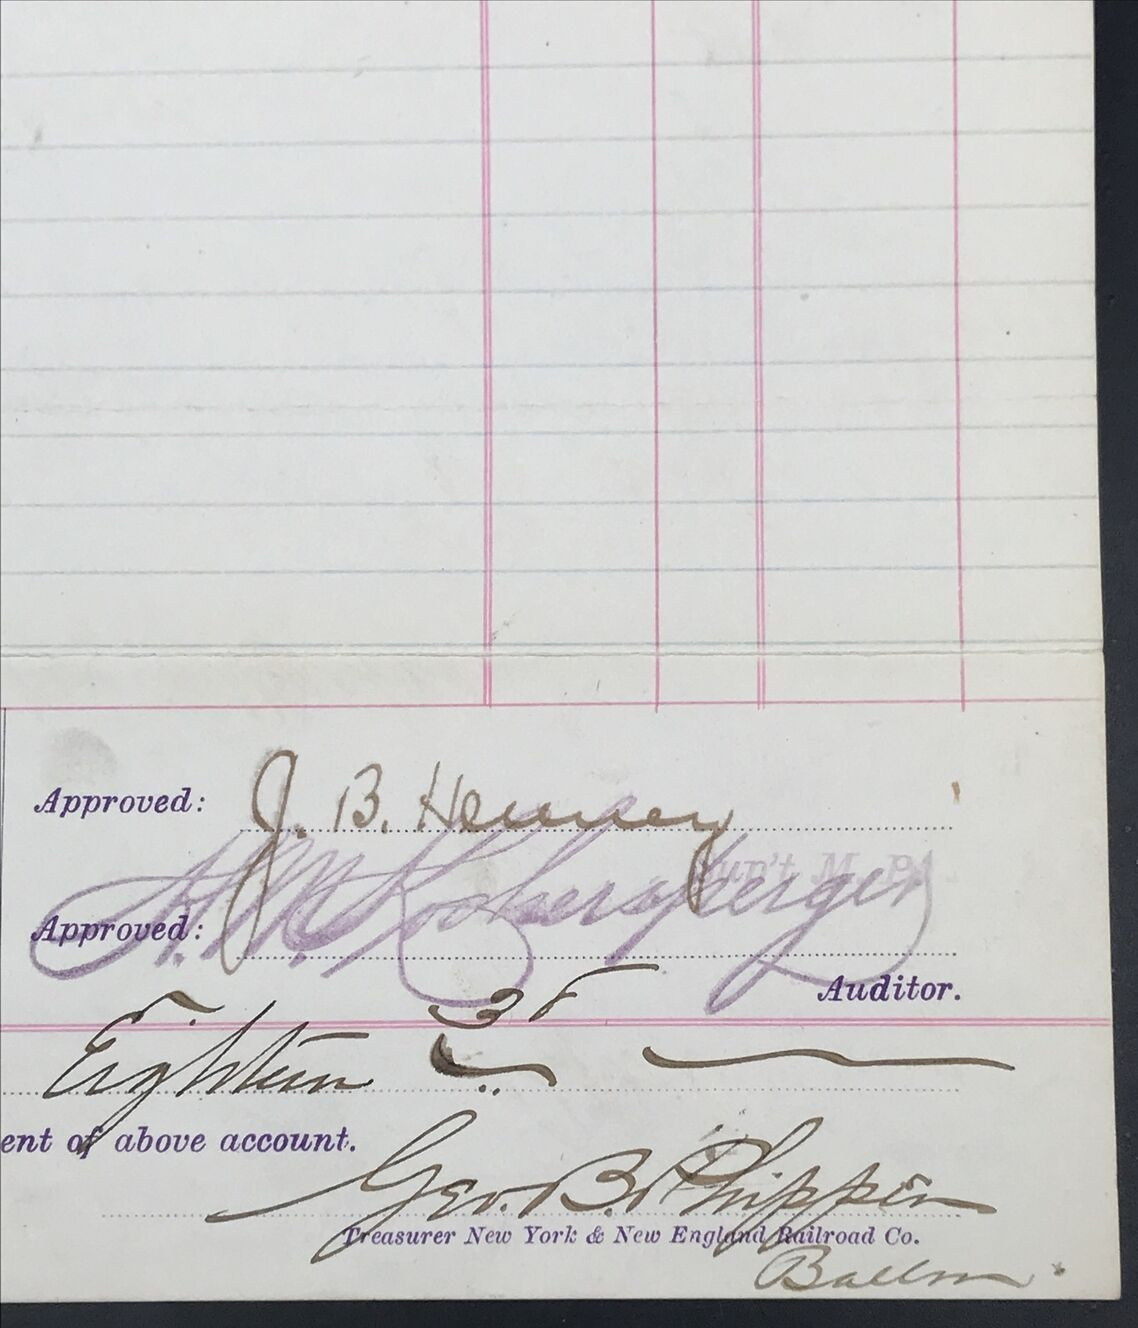 Approved: J. B. Henney
Sup't M. P.
Approved: A. M. Koshersperger
Auditor.
Eighteen
ent of above account.
Geo. B. Phippen
Treasurer New York & New England Railroad Co.